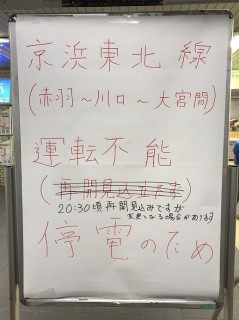 京浜東北線
(赤羽～川口～大宮間)
運転不能
(再開見込立たず)
20:30頃再開見込みですが
変更になる場合があります
停電のため